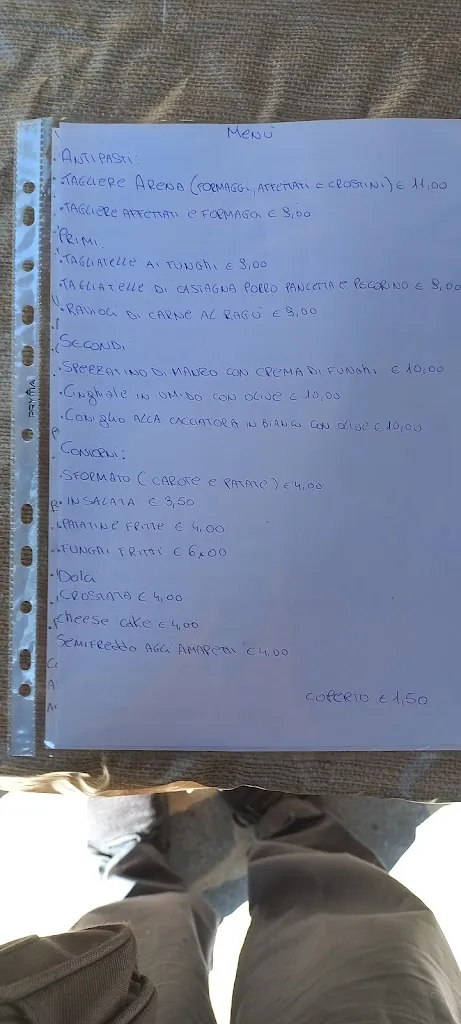 MENÙ
ANTIPASTI:
·TAGLIERE ARENA (FORMAGGI, AFFETTATI E CROSTINI) € 11,00
·TAGLIERE AFFETTATI E FORMAGGI € 9,00
PRIMI:
·TAGLIATELLE AI FUNGHI € 9,00
·TAGLIATELLE DI CASTAGNA PORRO PANCETTA E PECORINO € 9,00
·RAVIOLI DI CARNE AL RAGÙ € 9,00
SECONDI
·SPEZZATINO DI MANZO CON CREMA DI FUNGHI € 10,00
·CINGHIALE IN UMIDO CON OLIVE € 10,00
·CONIGLIO ALLA CACCIATORA IN BIANCO CON OLIVE € 10,00
CONTORNI:
·SFORMATO (CAROTE E PATATE) € 4,00
·INSALATA € 3,50
·PATATINE FRITTE € 4,00
·FUNGHI FRITTI € 6,00
Dolci
·CROSTATA € 4,00
·cheese cake € 4,00
SEMIFREDDO AGLI AMARETTI € 4,00
COPERTO € 1,50